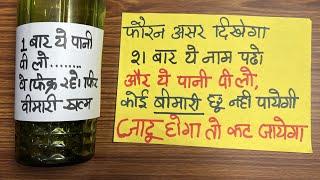 1 बार ये पानी
पी लो........
बीमारी खत्म
फौरन असर दिखेगा
२१ बार ये नाम पढो।
और ये पानी पी लो,
कोई बीमारी छू नही पायेगी
जादू होगा तो कट जायेगा